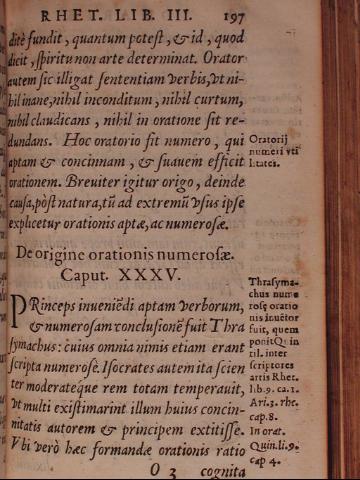 RHET. LIB. III. 197
ditè fundit, quantum potest, & id, quod
dicit, spiritu non arte determinat. Orator
autem sic illigat sententiam verbis, vt ni-
hil inane, nihil inconditum, nihil curtum,
nihil claudicans, nihil in oratione sit re-
dundans. Hoc oratorio fit numero, qui
aptam & concinnam, & suauem efficit
orationem. Breuiter igitur origo, deinde
causa, pòst natura, tũ ad extremũ vsus ipse
explicetur orationis aptæ, ac numerosæ.
Oratorij
numeri vti
litates.
De origine orationis numerosæ.
Caput. XXXV.
PRinceps inueniẽdi aptam verborum,
& numerosam conclusionẽ fuit Thra
symachus: cuius omnia nimis etiam erant
scripta numerosè. Isocrates autem ita scien
ter moderateque rem totam temperauit,
vt multi existimarint illum huius concin-
nitatis autorem & principem extitisse.
Vbi verò hæc formandæ orationis ratio
Thrasyma-
chus nume
rosę oratio
nis inuẽtor
fuit, quem
ponit Quin
til. inter
scriptores
artis Rhet.
lib. 9. ca. 1.
Ari. 3. rhe.
cap. 8.
In orat.
Quin. li. 9.
cap 4.
O 3 cognita